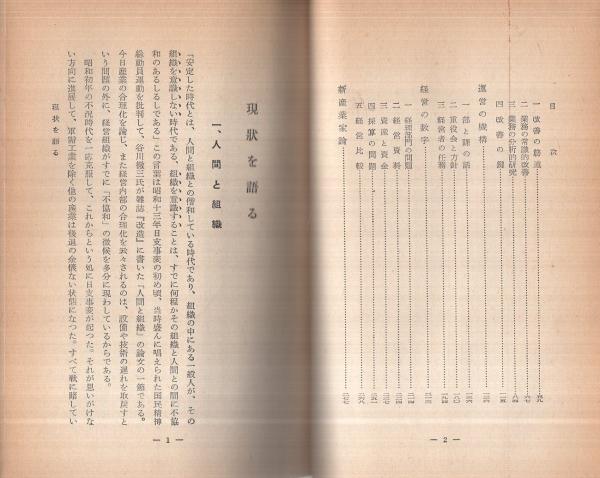 目次
一 改善の筋道
二 業務の常識的改善
三 業務の分析的研究
四 改善の鍵
運営の機構
一 部と課の話
二 重役会と方針
三 経営者の任務
経営の数字
一 経理部門の問題
二 経営資料
三 資産と資金
四 採算の問題
五 経営比較
新産業家論
— 2 —
現状を語る
一、人間と組織
「安定した時代とは、人間と組織との偕和している時代であり、組織の中にある一般人が、その
組織を意識しない時代である。組織を意識することは、すでに何程かその組織と人間との間に不協
和のあるしるしである」この言葉は昭和十三年日支事変の初め頃、当時盛んに唱えられた国民精神
総動員運動を批判して、谷川徹三氏が雑誌『改造』に書いた「人間と組織」の論文の一節である。
今日産業の合理化を論じ、また経営内部の合理化を云々されるのは、設備や技術の遅れを取戻すと
いう問題の外に、経営組織がすでに「不協和」の徴候を多分に現わしているからである。
昭和初年の不況時代を一応克服して、これからという処に日支事変が起つた。それが思いがけな
い方向に進展して、軍需工業を除く他の産業は後退の余儀ない状態になつた。すべて戦に賭してい
現状を語る
— 1 —